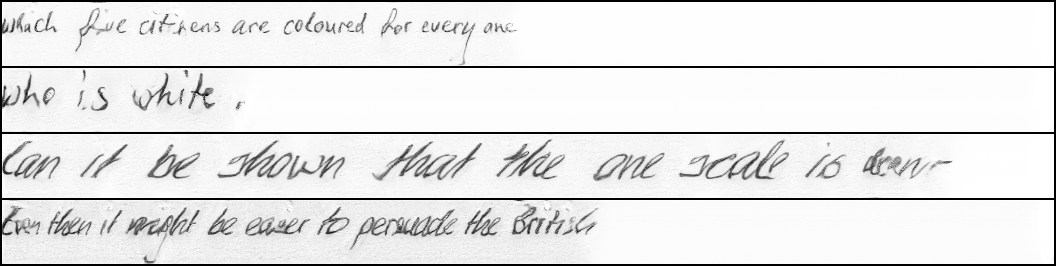 which five citizens are coloured for every one
who is white .
Can it be shown that the one scale is
Even then it might be easier to persuade the British